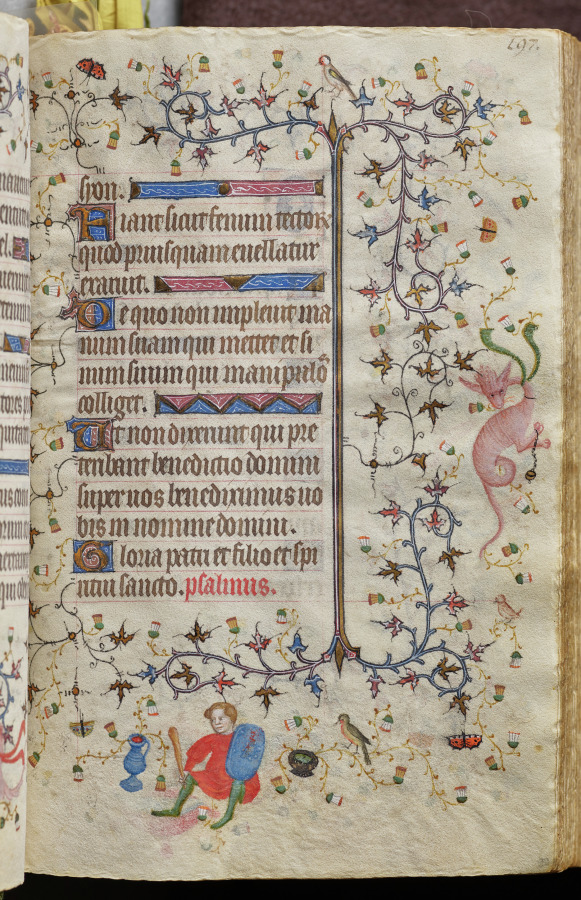 197.
syon.
Fiant sicut fenum tectorum
quod priusquam euellatur
exaruit.
De quo non impleuit ma
num suam qui mettet et si
num suum qui manipulos
colliget.
Et non dixerunt qui pre
teribant benedictio domini
super uos benediximus uo
bis in nomine domini.
Gloria patri et filio et spi
ritui sancto. psalmus.